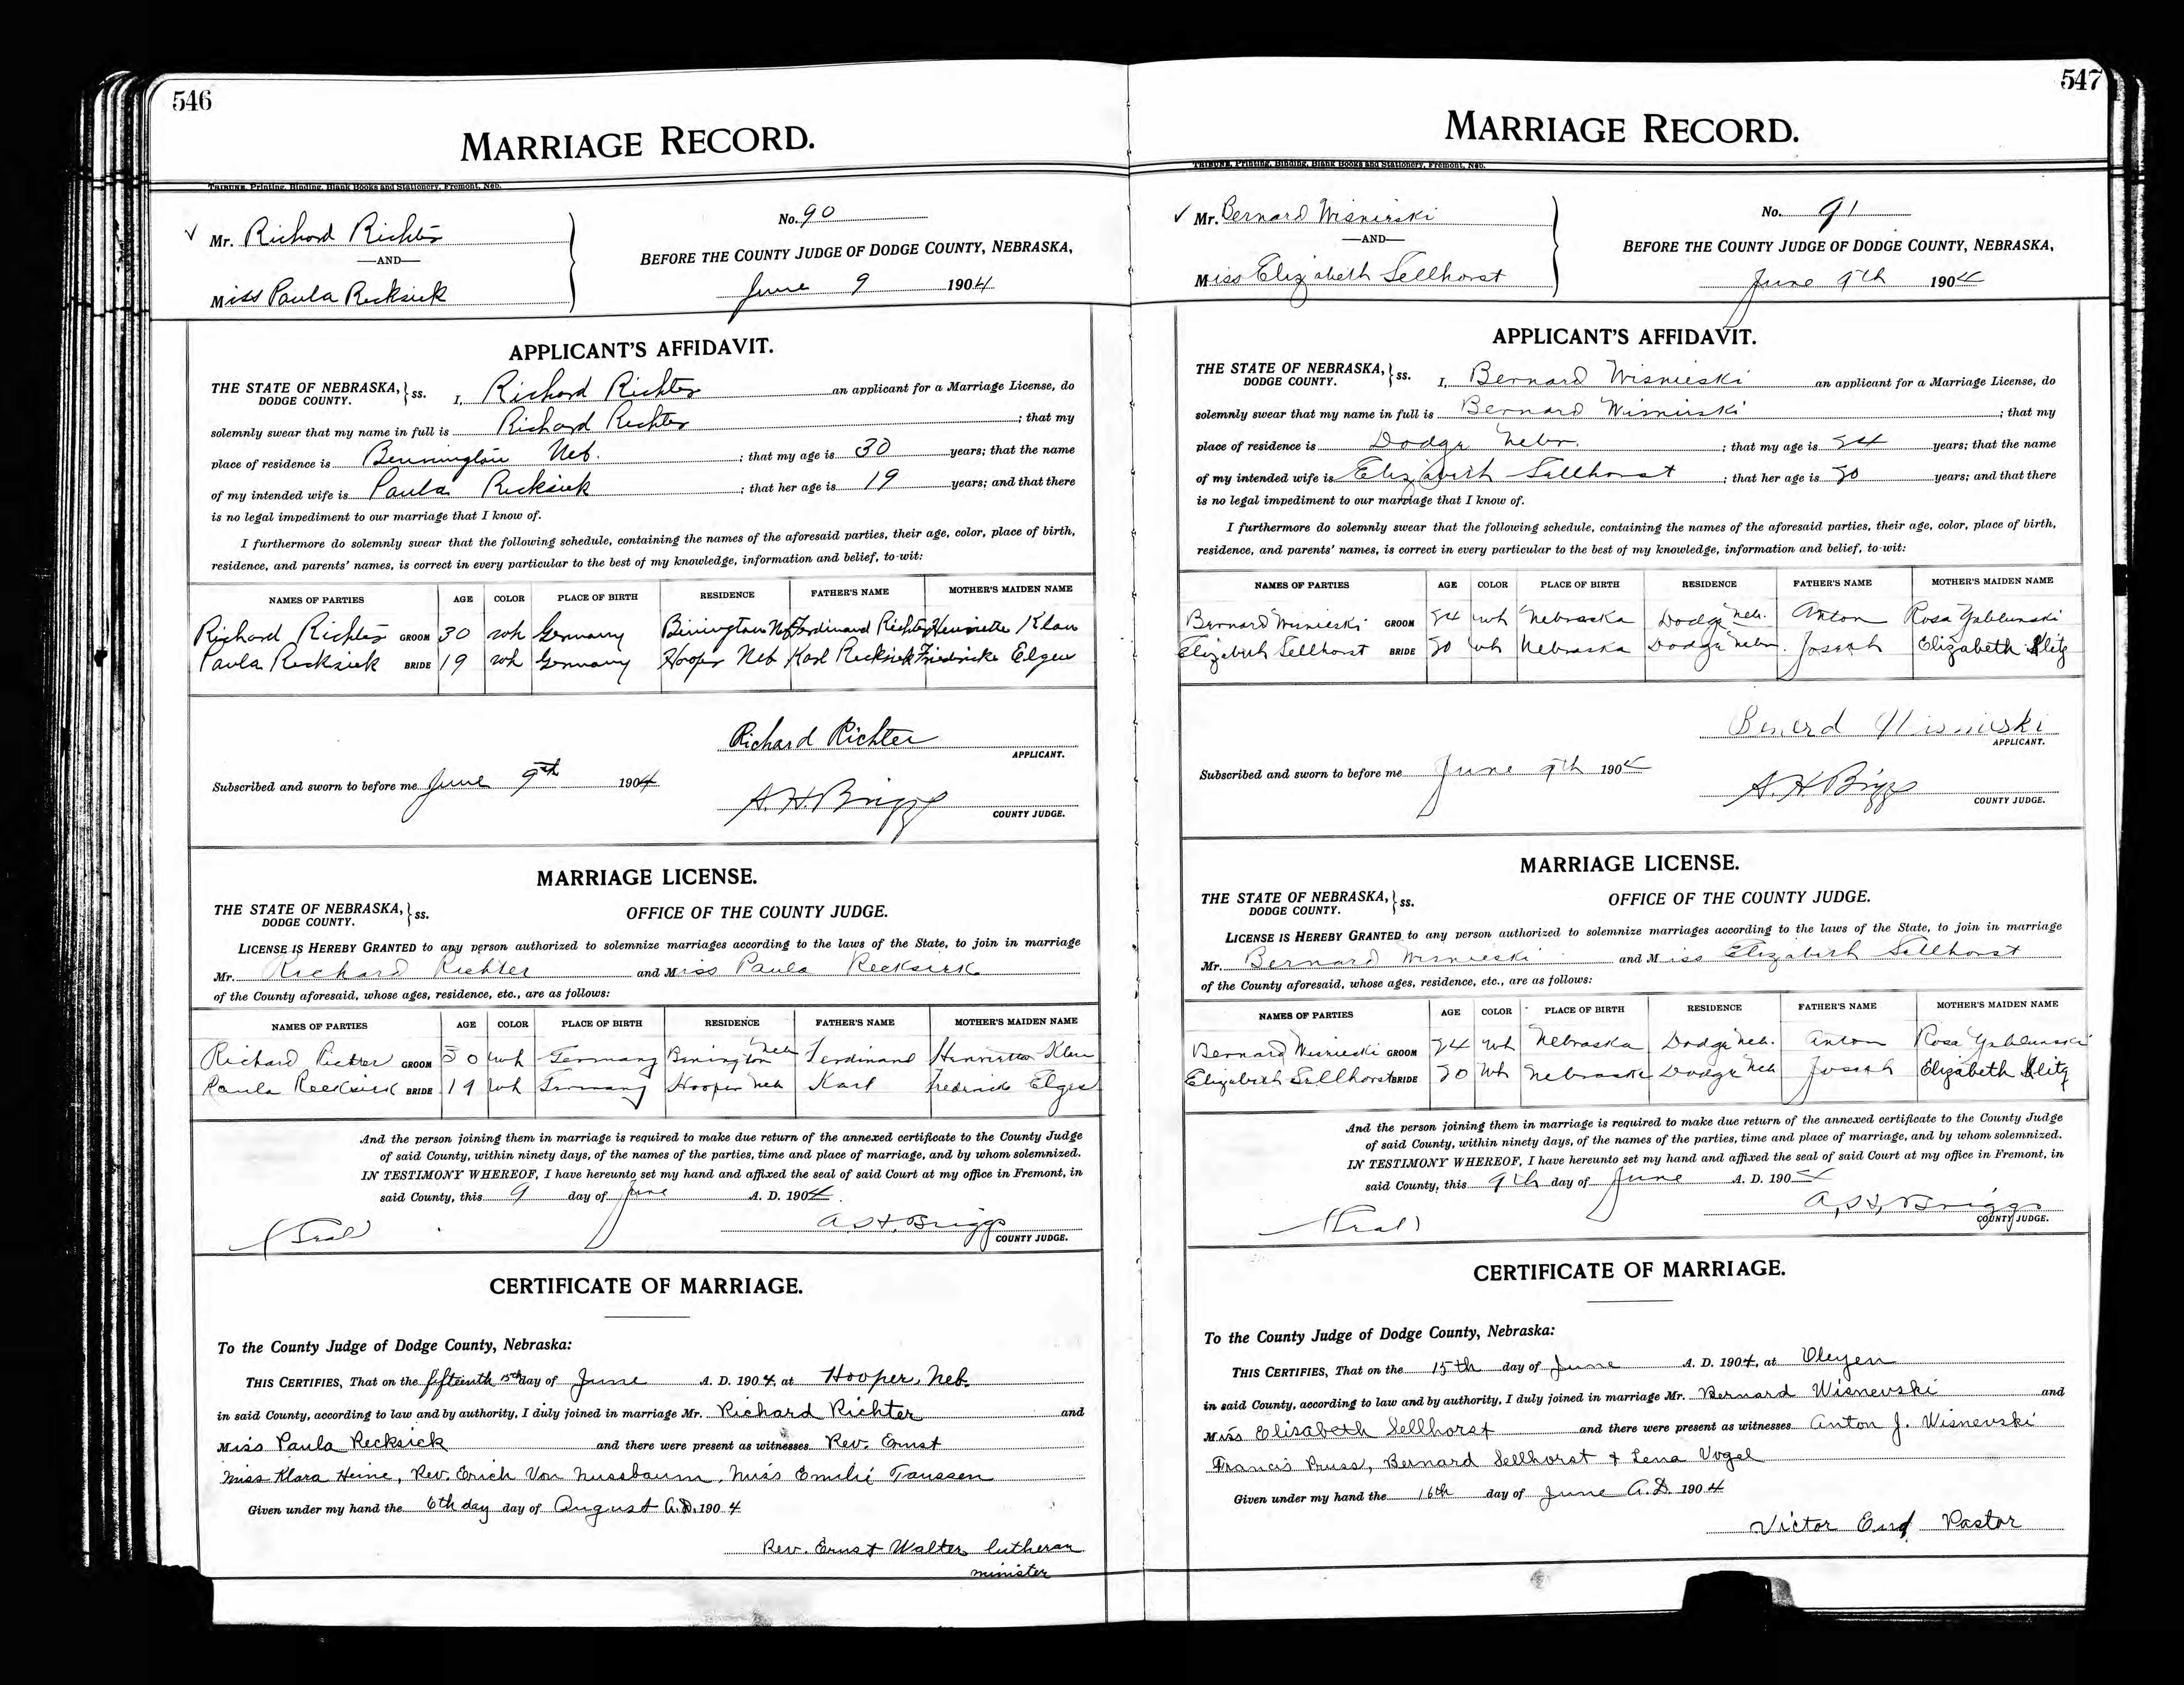 546
MARRIAGE RECORD.
TRIBUNE, Printing, Binding, Blank Books and Stationery, Fremont, Neb.
✓ Mr. Richard Richter
—AND—
Miss Paula Recksiek
No. 90
BEFORE THE COUNTY JUDGE OF DODGE COUNTY, NEBRASKA,
June 9 1904
APPLICANT'S AFFIDAVIT.
THE STATE OF NEBRASKA, } ss. I, Richard Richter an applicant for a Marriage License, do
DODGE COUNTY.
solemnly swear that my name in full is Richard Richter ; that my
place of residence is Bennington Neb. ; that my age is 30 years; that the name
of my intended wife is Paula Recksiek ; that her age is 19 years; and that there
is no legal impediment to our marriage that I know of.
I furthermore do solemnly swear that the following schedule, containing the names of the aforesaid parties, their age, color, place of birth,
residence, and parents' names, is correct in every particular to the best of my knowledge, information and belief, to-wit:
NAMES OF PARTIES AGE COLOR PLACE OF BIRTH RESIDENCE FATHER'S NAME MOTHER'S MAIDEN NAME
Richard Richter GROOM 30 wh Germany Binington Neb Ferdinand Richter Henriette Klau
Paula Recksiek BRIDE 19 wh Germany Hooper Neb Karl Recksiek Friedricke Elger
Richard Richter
APPLICANT.
Subscribed and sworn to before me June 9th 1904
A. H. Briggs
COUNTY JUDGE.
MARRIAGE LICENSE.
THE STATE OF NEBRASKA, } ss. OFFICE OF THE COUNTY JUDGE.
DODGE COUNTY.
LICENSE IS HEREBY GRANTED to any person authorized to solemnize marriages according to the laws of the State, to join in marriage
Mr. Richard Richter and Miss Paula Recksiek
of the County aforesaid, whose ages, residence, etc., are as follows:
NAMES OF PARTIES AGE COLOR PLACE OF BIRTH RESIDENCE FATHER'S NAME MOTHER'S MAIDEN NAME
Richard Richter GROOM 30 wh Germany Binington Neb Ferdinand Henrietta Klau
Paula Recksiek BRIDE 19 wh Germany Hooper Neb Karl Fredericke Elger
And the person joining them in marriage is required to make due return of the annexed certificate to the County Judge
of said County, within ninety days, of the names of the parties, time and place of marriage, and by whom solemnized.
IN TESTIMONY WHEREOF, I have hereunto set my hand and affixed the seal of said Court at my office in Fremont, in
said County, this 9 day of June A. D. 1904.
(Seal) A. H. Briggs
COUNTY JUDGE.
CERTIFICATE OF MARRIAGE.
To the County Judge of Dodge County, Nebraska:
THIS CERTIFIES, That on the fifteenth 15th day of June A. D. 1904, at Hooper, Neb.
in said County, according to law and by authority, I duly joined in marriage Mr. Richard Richter and
Miss Paula Recksick and there were present as witnesses Rev. Ernst
Miss Klara Heine, Rev. Erich Von Nussbaum, Miss Emilie Taussen
Given under my hand the 6th day day of August A.D. 1904
Rev. Ernst Walter lutheran
minister
547
MARRIAGE RECORD.
TRIBUNE, Printing, Binding, Blank Books and Stationery, Fremont, Neb.
✓ Mr. Bernard Wisnieski
—AND—
Miss Elizabeth Sellhorst
No. 91
BEFORE THE COUNTY JUDGE OF DODGE COUNTY, NEBRASKA,
June 9th 1904
APPLICANT'S AFFIDAVIT.
THE STATE OF NEBRASKA, } ss. I, Bernard Wisnieski an applicant for a Marriage License, do
DODGE COUNTY.
solemnly swear that my name in full is Bernard Wisnieski ; that my
place of residence is Dodge Nebr. ; that my age is 24 years; that the name
of my intended wife is Elizabeth Sellhorst ; that her age is 20 years; and that there
is no legal impediment to our marriage that I know of.
I furthermore do solemnly swear that the following schedule, containing the names of the aforesaid parties, their age, color, place of birth,
residence, and parents' names, is correct in every particular to the best of my knowledge, information and belief, to-wit:
NAMES OF PARTIES AGE COLOR PLACE OF BIRTH RESIDENCE FATHER'S NAME MOTHER'S MAIDEN NAME
Bernard Wisnieski GROOM 24 wh Nebraska Dodge Neb. Anton Rosa Yablunski
Elizabeth Sellhorst BRIDE 20 wh Nebraska Dodge Nebr. Joseph Elizabeth
Bernerd Wisnieski
APPLICANT.
Subscribed and sworn to before me June 9th 1904
A. H. Briggs
COUNTY JUDGE.
MARRIAGE LICENSE.
THE STATE OF NEBRASKA, } ss. OFFICE OF THE COUNTY JUDGE.
DODGE COUNTY.
LICENSE IS HEREBY GRANTED to any person authorized to solemnize marriages according to the laws of the State, to join in marriage
Mr. Bernard Wisnieski and Miss Elizabeth Sellhorst
of the County aforesaid, whose ages, residence, etc., are as follows:
NAMES OF PARTIES AGE COLOR PLACE OF BIRTH RESIDENCE FATHER'S NAME MOTHER'S MAIDEN NAME
Bernard Wisnieski GROOM 24 wh Nebraska Dodge Neb. Anton Rosa Yablunski
Elizabeth Sellhorst BRIDE 20 wh Nebraska Dodge Neb Joseph Elizabeth
And the person joining them in marriage is required to make due return of the annexed certificate to the County Judge
of said County, within ninety days, of the names of the parties, time and place of marriage, and by whom solemnized.
IN TESTIMONY WHEREOF, I have hereunto set my hand and affixed the seal of said Court at my office in Fremont, in
said County, this 9th day of June A. D. 1904
(Seal) A. H. Briggs
COUNTY JUDGE.
CERTIFICATE OF MARRIAGE.
To the County Judge of Dodge County, Nebraska:
THIS CERTIFIES, That on the 15th day of June A. D. 1904, at Oleyen
in said County, according to law and by authority, I duly joined in marriage Mr. Bernard Wisnevski and
Miss Elisabeth Sellhorst and there were present as witnesses Anton J. Wisnevski
Francis Pruss, Bernard Sellhorst & Lena Vogel
Given under my hand the 16th day of June A.D. 1904
Victor Pastor